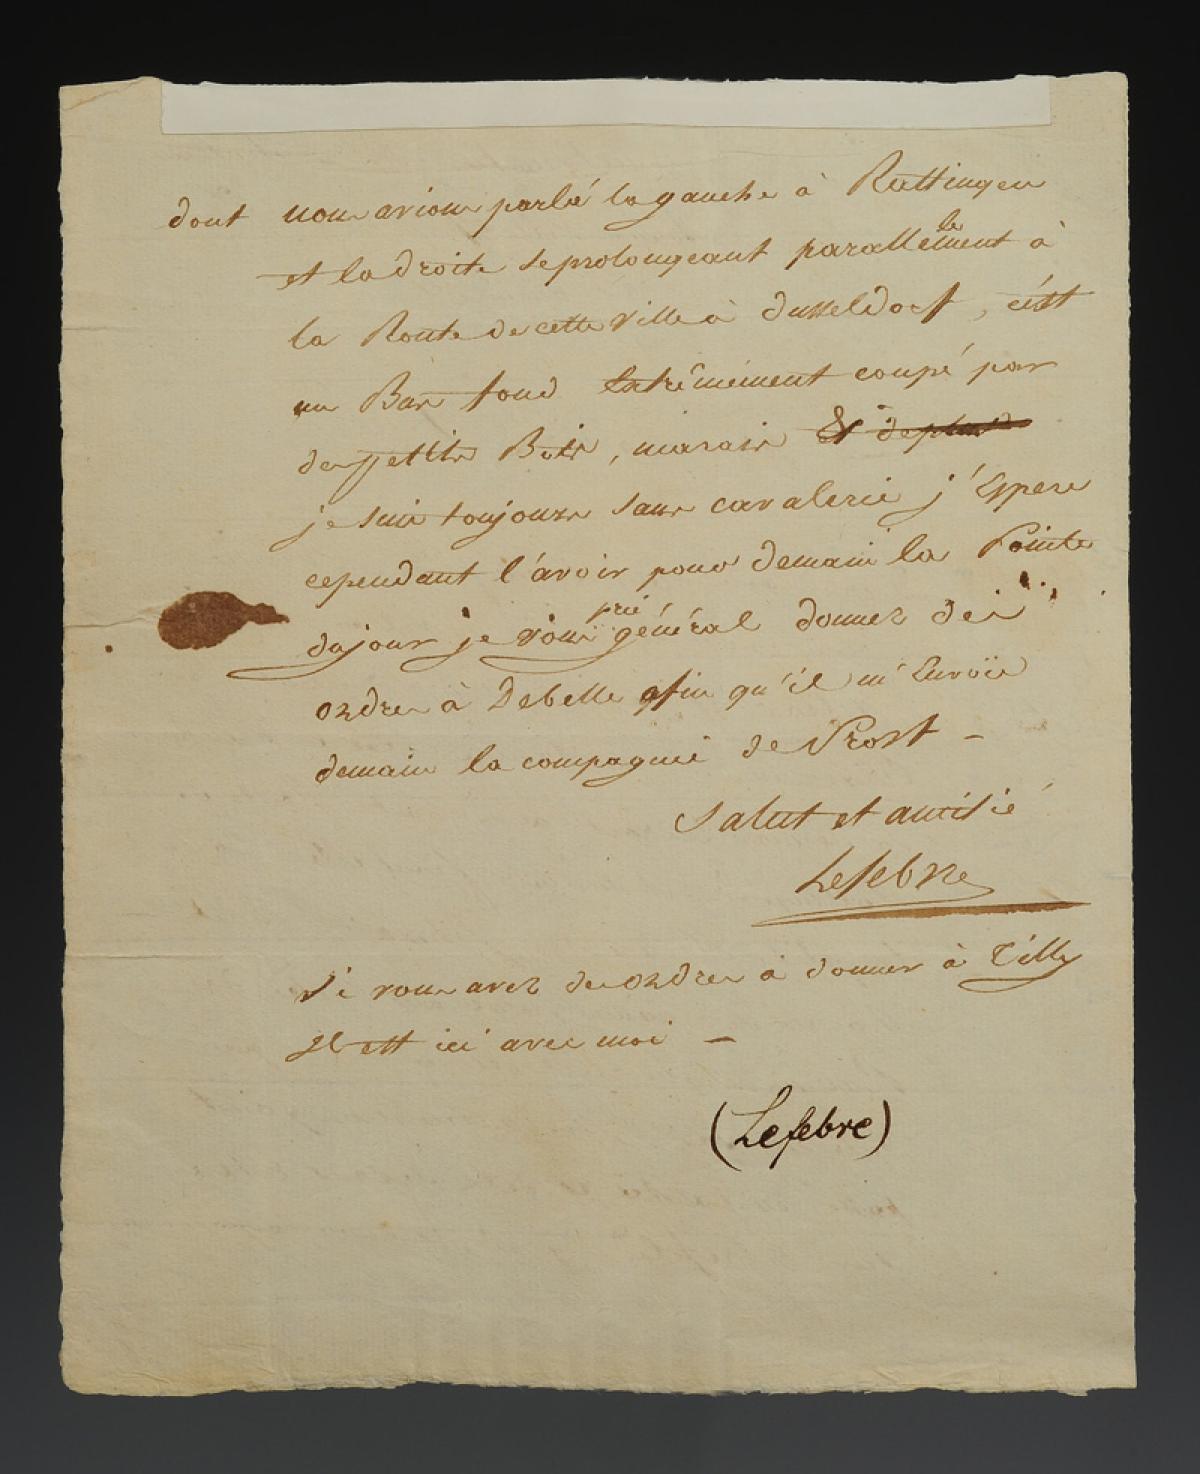 dont nous avions parlé la gauche à Rattingen
et la droite se prolongeant parallelement à
la Route de cette Ville à dusseldorf, c'est
un Bas fond extrêmement coupé par
des petits Bois, marais & de plus
je suis toujours sans cavalerie j'Espere
cependant l'avoir pour demain la Pointe
du jour je vous prie général donnez des
ordres à Debelle afin qu'il m'Envoïe
demain la compagnie de Prost –
Salut et amitié
Lefebre
si vous avez des ordres à donner à Tilly
Il est ici avec moi –
(Lefebre)